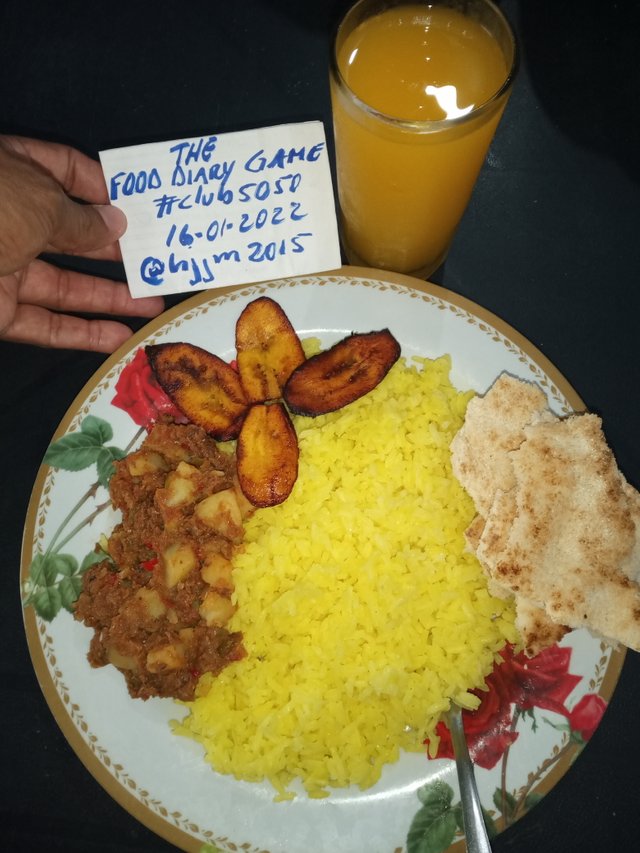 THE
FOOD DIARY GAME
#club5050
16-01-2022
@hjjm2015